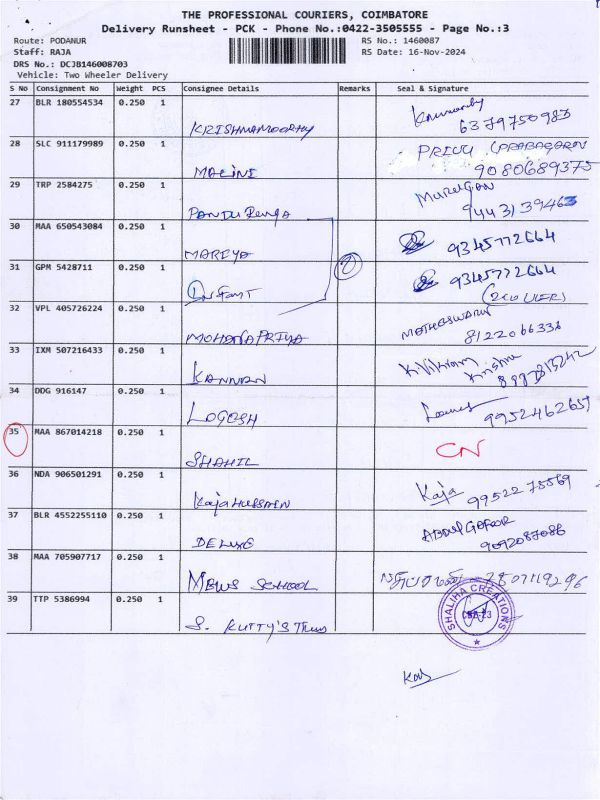 THE PROFESSIONAL COURIERS, COIMBATORE
Delivery Runsheet - PCK - Phone No.:0422-3505555 - Page No.:3
Route: PODANUR RS No.: 1460087
Staff: RAJA RS Date: 16-Nov-2024
DRS No.: DCJB146008703
Vehicle: Two Wheeler Delivery
S No Consignment No Weight PCS Consignee Details Remarks Seal & Signature
27 BLR 180554534 0.250 1
KRISHNAMOORTHY 6379750983
28 SLC 911179989 0.250 1 PRIYU (PRABAGARAN
MALINI 9080689375
29 TRP 2584275 0.250 1 Murugan
PANDU Renga 9443139463
30 MAA 650543084 0.250 1
MARIYA 9345772664
31 GPM 5428711 0.250 1 2 9345772664
INFANT
32 VPL 405726224 0.250 1 MATHESWARN
MOHANAPRIYA 8122066338
33 IXM 507216433 0.250 1 K. Vikram
KANNAN Krishna
34 DDG 916147 0.250 1
LOGESH 9952462657
35 MAA 867014218 0.250 1 CN
SHAHIL
36 NDA 906501291 0.250 1 Kaja 9952275569
Kaja HUSSAIN
37 BLR 4552255110 0.250 1 ABDUL GAFOOR
DELUXE 9092087086
38 MAA 705907717 0.250 1
MEWS SCHOOL
39 TTP 5386994 0.250 1 SHALIHA CREATIONS
S. KUTTY'S